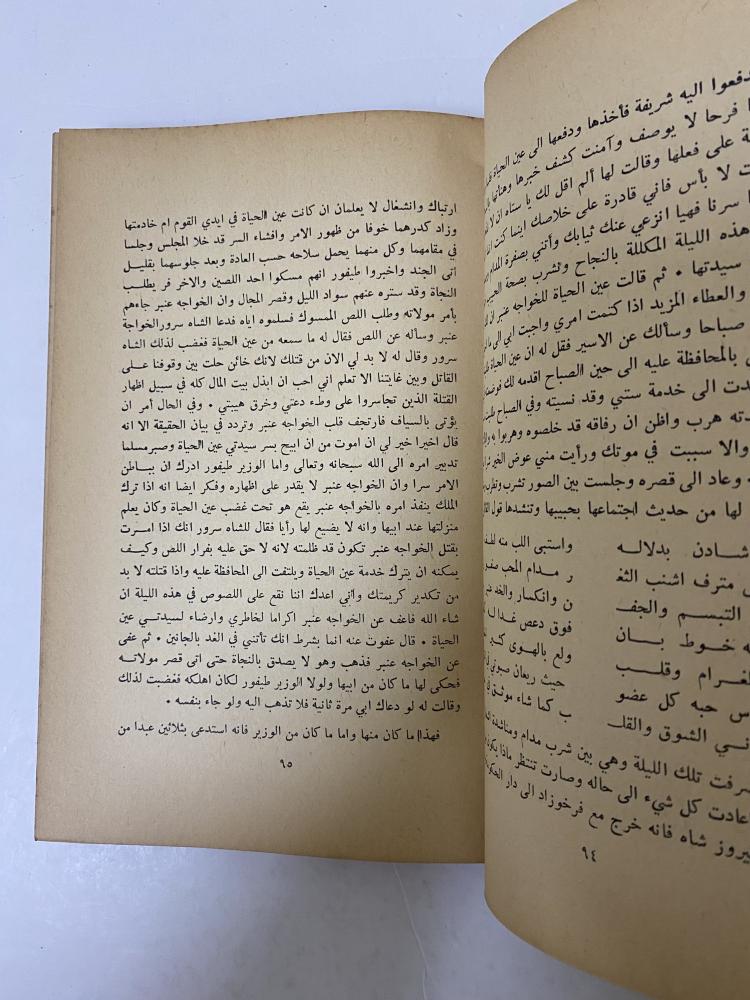 دفعوا اليه شريفة فأخذها ودفعها الى عين الحياة
فرحا لا يوصف وآمنت كشف خبرها وهنأتها
على فعلها وقالت لها ألم اقل لك يا ستاه ان لا
لا بأس فاني قادرة على خلاصك اينما كنت
سرنا فهيا انزعي عنك ثيابك وأتني بصفرة المدام
هذه الليلة المكللة بالنجاح ونشرب بصحة الحبيب
سيدتها • ثم قالت عين الحياة للخواجه عنبر ان
والعطاء المزيد اذا كتمت امري واجبت ابي الى ما
صباحا وسألك عن الاسير فقل له ان عين الحياة
بالمحافظة عليه الى حين الصباح اقدمه لك
الى خدمة ستي وقد نسيته وفي الصباح
هرب واظن ان رفاقه قد خلصوه وهربوا به
والا سببت في موتك ورأيت مني عوض الخير
• وعاد الى قصره وجلست بين الصور تشرب
لها من حديث اجتماعها بحبيبها وتنشدها قول
شادن بدلاله واستبى اللب منه
مترف اشنب الثغ ر مدام المحب
التبسم والجف ن وانكسار والخد
خوط بان فوق دعص غدا
وقلب ولع بالهوى
حبه كل عضو حيث ريعان صبوتي
ني الشوق والقلـ ب كما شاء موثق
صرفت تلك الليلة وهي بين شرب مدام ومناشدة
عادت كل شيء الى حاله وصارت تنتظر ماذا يكون
يروز شاه فانه خرج مع فرخوزاد الى دار
٩٤
ارتباك وانشغال لا يعلمان ان كانت عين الحياة في ايدي القوم ام خادمتها
وزاد كدرهما خوفا من ظهور الامر وافشاء السر قد خلا المجلس وجلسا
في مقامهما وكل منهما يحمل سلاحه حسب العادة وبعد جلوسهما بقليـل
اتى الجند واخبروا طيفور انهم مسكوا احد اللصين والاخر فر يطلـب
النجاة وقد ستره عنهم سواد الليل وقصر المجال وان الخواجه عنبر جاءهم
بأمر مولاته وطلب اللص الممسوك فسلموه اياه فدعا الشاه سرور الخواجة
عنبر وسأله عن اللص فقال له ما سمعه من عين الحياة فغضب لذلك الشاه
سرور وقال له لا بد لي الان من قتلك لانك خائن حلت بين وقوفنا علـى
القاتل وبين غايتنا الا تعلم اني احب ان ابذل بيت المال كله في سبيل اظهار
القتلة الذين تجاسروا على وطء دعتي وخرق هيبتي • وفي الحال أمر ان
يؤتى بالسياف فارتجف قلب الخواجه عنبر وتردد في بيان الحقيقة الا انه
قال اخيرا خير لي ان اموت من ان ابيح بسر سيدتي عين الحياة وصبر مسلما
تدبير امره الى الله سبحانه وتعالى واما الوزير طيفور ادرك ان ببـاطن
الامر سرا وان الخواجه عنبر لا يقدر على اظهاره وفكر ايضا انه اذا ترك
الملك ينفذ امره بالخواجه عنبر يقع هو تحت غضب عين الحياة وكان يعلم
منزلتها عند ابيها وانه لا يضيع لها رأيا فقال للشاه سرور انك اذا امـرت
بقتل الخواجه عنبر تكون قد ظلمته لانه لا حق عليه بفرار اللص وكيـف
يمكنه ان يترك خدمة عين الحياة ويلتفت الى المحافظة عليه واذا قتلته لا بد
من تكدير كريمتك واني اعدك اننا نقع على اللصوص في هذه الليلة ان
شاء الله فاعف عن الخواجه عنبر اكراما لخاطري وارضاء لسيدتـي عين
الحياة • قال عفوت عنه انما بشرط انك تأتني في الغد بالجانين • ثم عفى
عن الخواجه عنبر فذهب وهو لا يصدق بالنجاة حتى اتى قصر مولاتـه
فحكى لها ما كان من ابيها ولولا الوزير طيفور لكان اهلكه فغضبت لذلك
وقالت له لو دعاك ابي مرة ثانية فلا تذهب اليه ولو جاء بنفسه •
فهذا ما كان منها واما ما كان من الوزير فانه استدعى بثلاثين عبدا من
٩٥